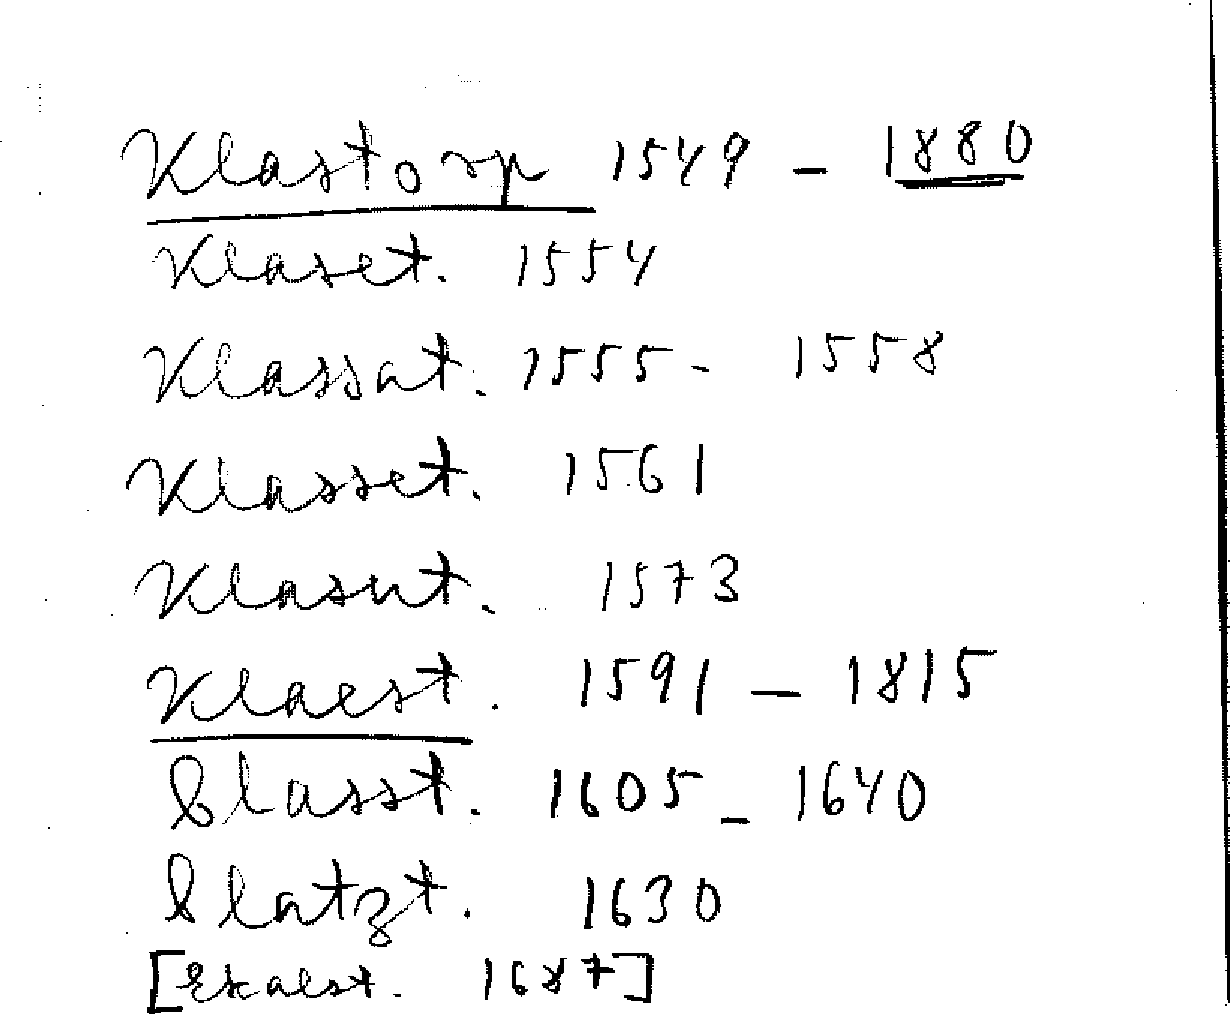 Klastorp 1549 - 1880
Klaset. 1554
Klassat. 1555 - 1558
Klasset. 1561
Klasut. 1573
Klaest. 1591 - 1815
Classt. 1605 - 1640
Clatzt. 1630
[Ekalst. 1687]